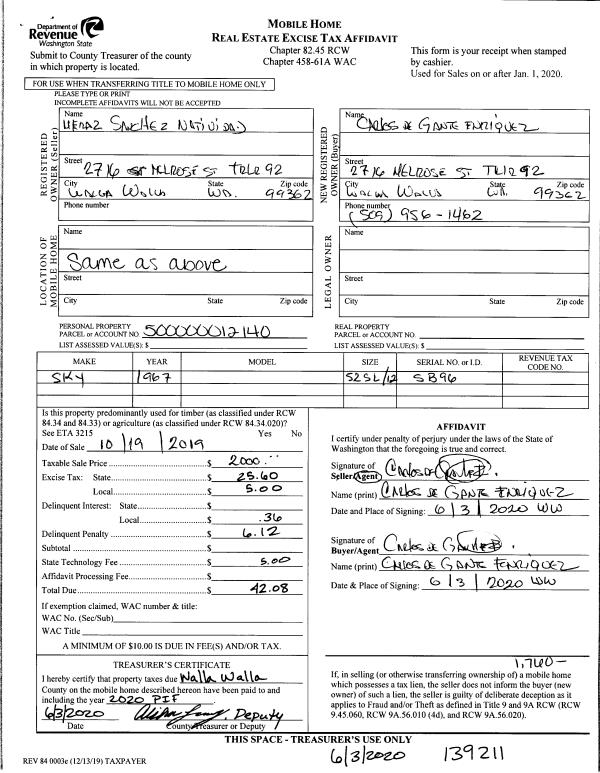 Department of
Revenue
Washington State
Submit to County Treasurer of the county
in which property is located.
MOBILE HOME
REAL ESTATE EXCISE TAX AFFIDAVIT
Chapter 82.45 RCW
Chapter 458-61A WAC
This form is your receipt when stamped
by cashier.
Used for Sales on or after Jan. 1, 2020.
FOR USE WHEN TRANSFERRING TITLE TO MOBILE HOME ONLY
PLEASE TYPE OR PRINT
INCOMPLETE AFFIDAVITS WILL NOT BE ACCEPTED
REGISTERED OWNER (Seller)
Name
MERAZ SANCHEZ NATIVIDAD
Street
2716 MELROSE ST TRLR 92
City State Zip code
WALLA WALLA WA. 99362
Phone number
NEW REGISTERED OWNER (Buyer)
Name
CARLOS DE GANTE ENRIQUEZ
Street
2716 MELROSE ST TRLR 92
City State Zip code
WALLA WALLA WA. 99362
Phone number
(509) 956-1462
LOCATION OF MOBILE HOME
Name
Same as above
Street
City State Zip code
LEGAL OWNER
Name
Street
City State Zip code
PERSONAL PROPERTY
PARCEL or ACCOUNT NO. 500000012140
LIST ASSESSED VALUE(S): $
REAL PROPERTY
PARCEL or ACCOUNT NO.
LIST ASSESSED VALUE(S): $
MAKE YEAR MODEL SIZE SERIAL NO. or I.D. REVENUE TAX CODE NO.
SKY 1967 52SL/12 SB96
Is this property predominantly used for timber (as classified under RCW
84.34 and 84.33) or agriculture (as classified under RCW 84.34.020)?
See ETA 3215 Yes No
Date of Sale 10/19/2019
Taxable Sale Price $ 2000.--
Excise Tax: State $ 25.60
Local $ 5.00
Delinquent Interest: State $
Local $ .36
Delinquent Penalty $ 6.12
Subtotal $
State Technology Fee $ 5.00
Affidavit Processing Fee $
Total Due $ 42.08
If exemption claimed, WAC number & title:
WAC No. (Sec/Sub)
WAC Title
A MINIMUM OF $10.00 IS DUE IN FEE(S) AND/OR TAX.
AFFIDAVIT
I certify under penalty of perjury under the laws of the State of
Washington that the foregoing is true and correct.
Signature of
Seller/Agent Carlos de Gante E.
Name (print) CARLOS DE GANTE ENRIQUEZ
Date and Place of Signing: 6/3/2020 WW
Signature of
Buyer/Agent Carlos de Gante E.
Name (print) CARLOS DE GANTE ENRIQUEZ
Date & Place of Signing: 6/3/2020 WW
TREASURER'S CERTIFICATE
I hereby certify that property taxes due Walla Walla
County on the mobile home described hereon have been paid to and
including the year 2020 PIF
6/3/2020 , Deputy
Date County Treasurer or Deputy
1,760-
If, in selling (or otherwise transferring ownership of) a mobile home
which possesses a tax lien, the seller does not inform the buyer (new
owner) of such a lien, the seller is guilty of deliberate deception as it
applies to Fraud and/or Theft as defined in Title 9 and 9A RCW (RCW
9.45.060, RCW 9A.56.010 (4d), and RCW 9A.56.020).
THIS SPACE - TREASURER'S USE ONLY
6/3/2020 139211
REV 84 0003e (12/13/19) TAXPAYER